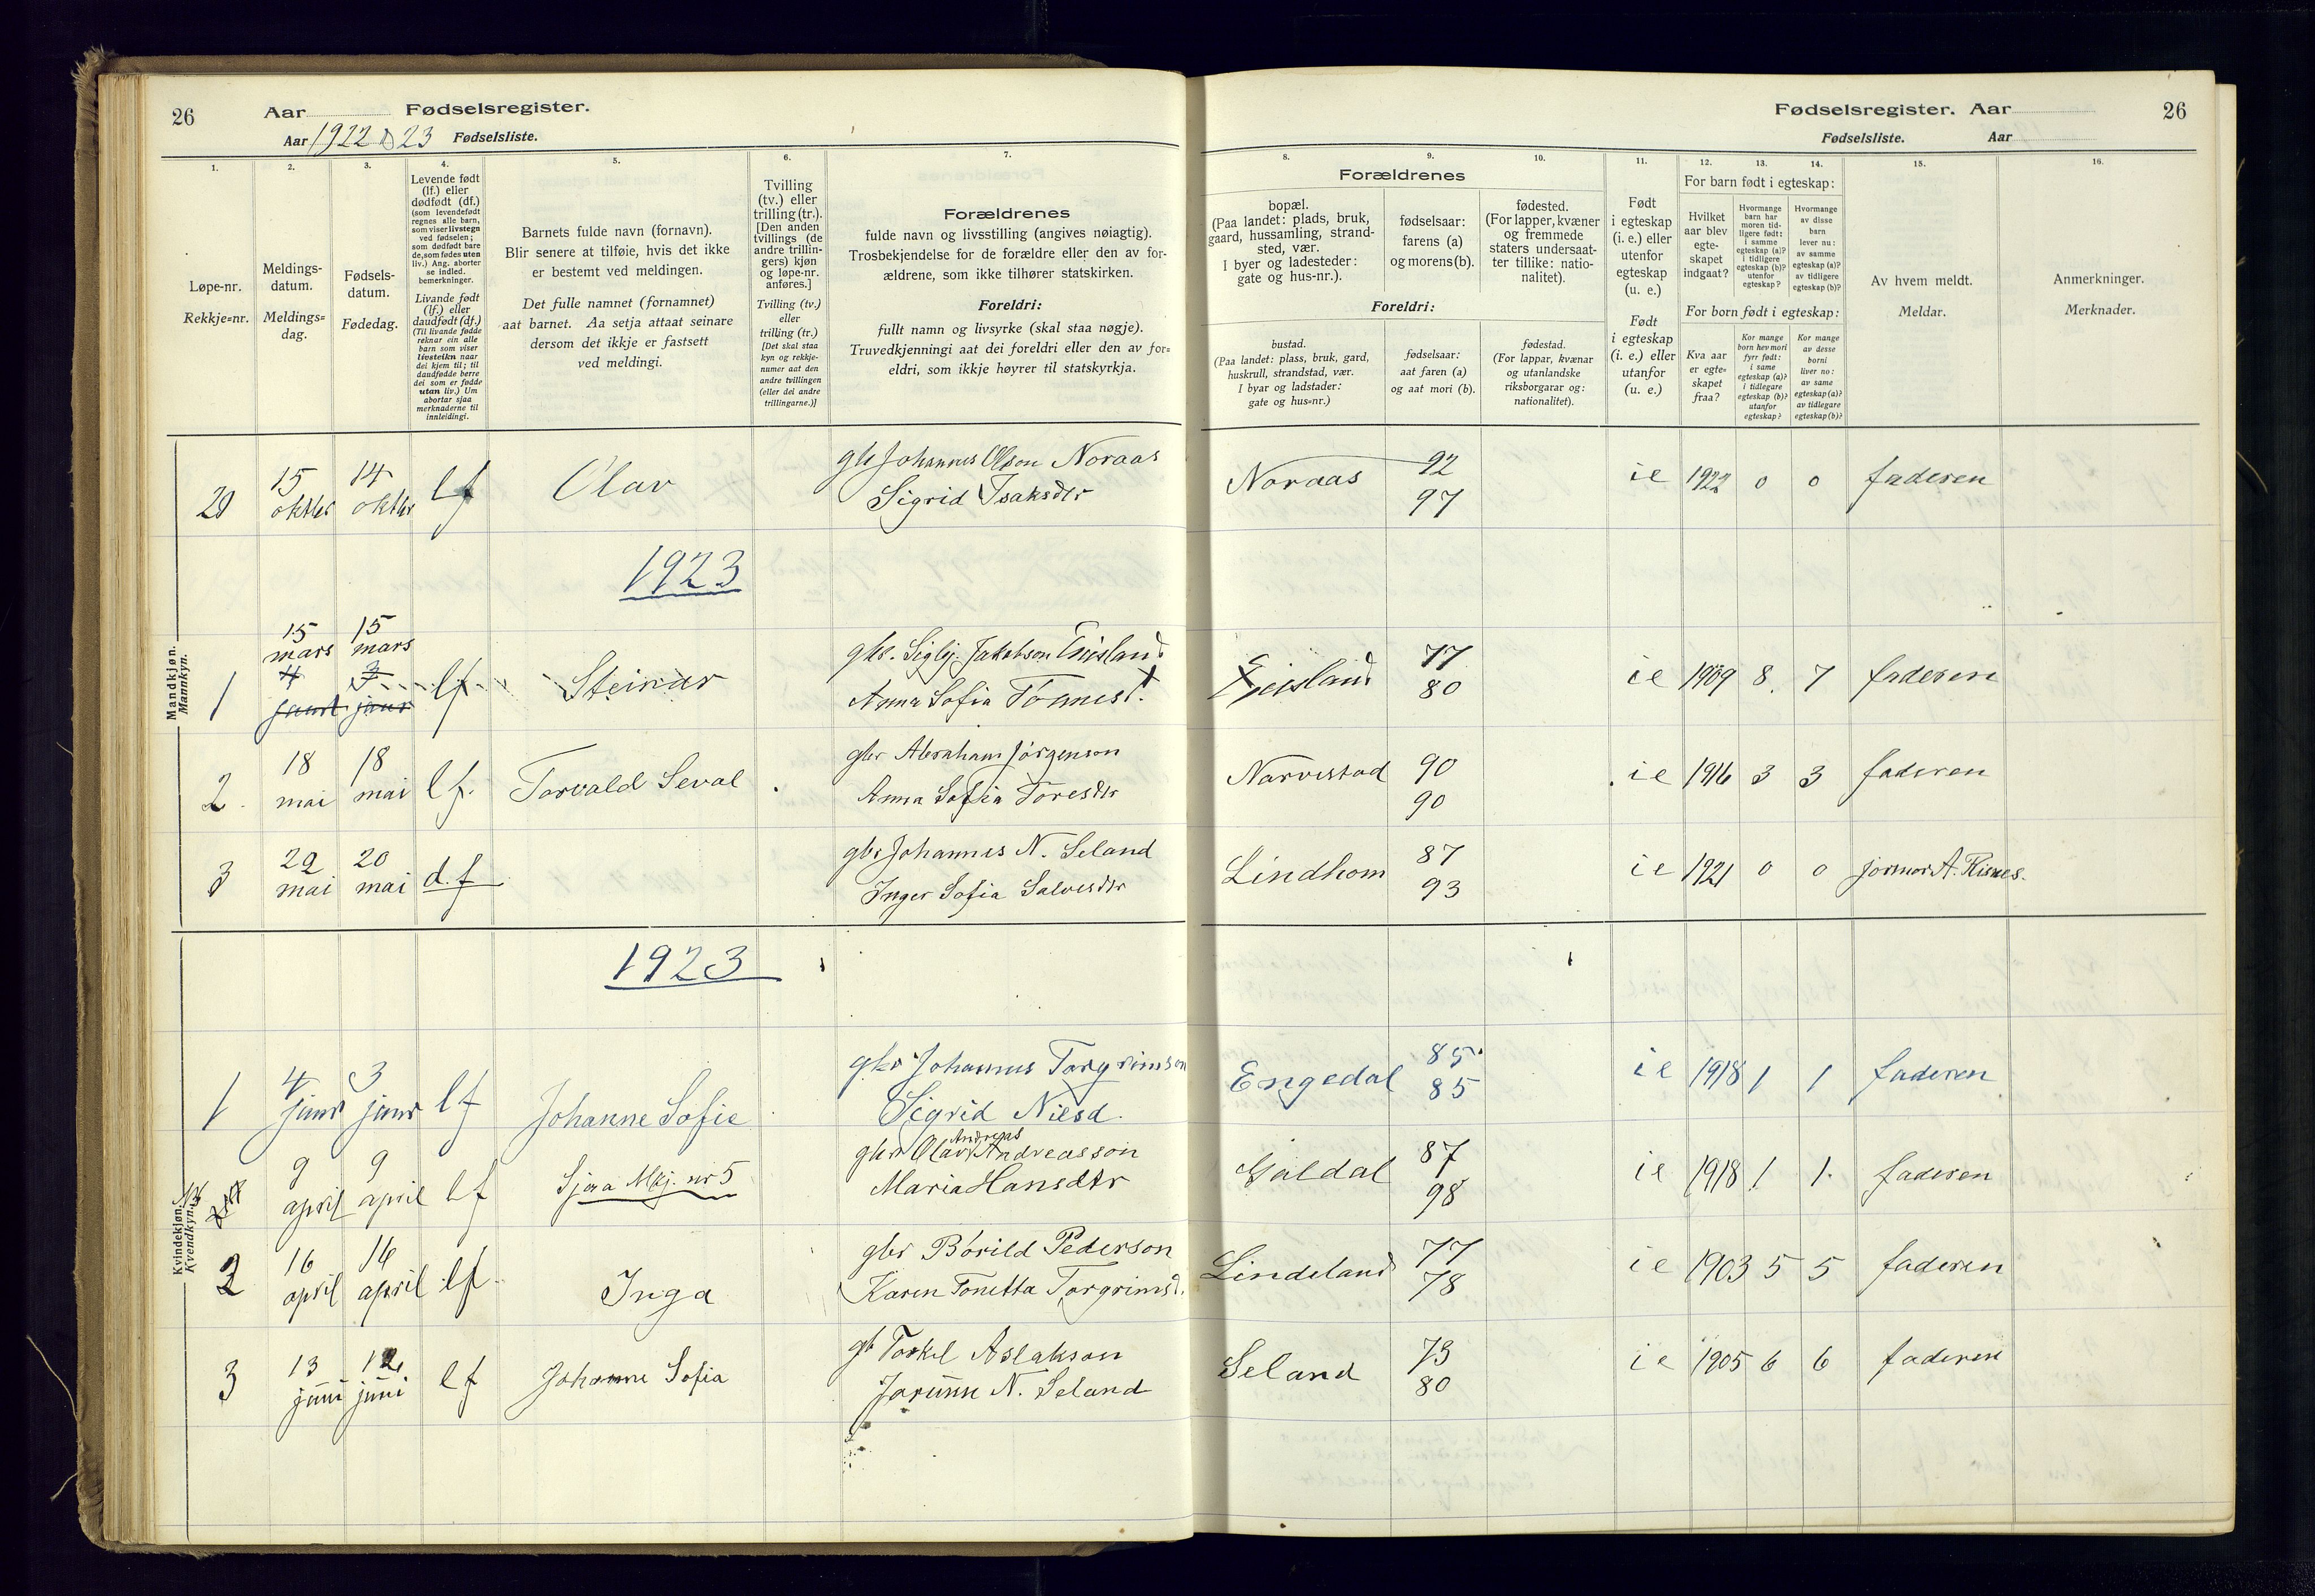 26
Aar Fødselsregister.
Aar 1922 23 Fødselsliste.
1.
Løpe-nr.
Rekkje=nr.
2.
Meldings-
datum.
Meldings=
dag.
3.
Fødsels-
datum.
Fødedag.
4.
Levende født
(lf.) eller
dødfødt (df.)
(som levendefødt
regnes alle barn,
som viser livstegn
ved fødselen;
som dødfødt bare
de, som fødes uten
liv.) Ang. aborter
se indled.
bemerkninger.
Livande født
(lf.) eller
daudfødt (df.)
(Til livande fødde
reknar ein alle
barn som viser
livsteikn naar
dei kjem til; til
daudfødde berre
dei som er fødde
utan liv.) Um
abortar sjaa
merknaderne til
innleidingi.
5.
Barnets fulde navn (fornavn).
Blir senere at tilføie, hvis det ikke
er bestemt ved meldingen.
Det fulle namnet (fornamnet)
aat barnet. Aa setja attaat seinare
dersom det ikkje er fastsett
ved meldingi.
6.
Tvilling
(tv.) eller
trilling (tr.).
[Den anden
tvillings (de
andre trillin-
gers) kjøn
og løpe-nr.
anføres.]
Tvilling (tv.)
eller
trilling (tr.)
[Det skal staa
kyn og rekkje-
numer aat den
andre tvillingen
(eller dei andre
trillingarne.)]
7.
Forældrenes
fulde navn og livsstilling (angives nøiagtig).
Trosbekjendelse for de forældre eller den av for-
ældrene, som ikke tilhører statskirken.
Foreldri:
fullt namn og livsyrke (skal staa nøgje).
Truvedkjenningi aat dei foreldri eller den av for=
eldri, som ikkje høyrer til statskyrkja.
Fødselsregister. Aar
26
Fødselsliste. Aar
8.
9.
10.
Forældrenes
bopæl.
(Paa landet: plads, bruk,
gaard, hussamling, strand-
sted, vær.
I byer og ladesteder:
gate og hus-nr.).
fødselsaar:
farens (a)
og morens (b).
fødested.
(For lapper, kvæner
og fremmede
staters undersaat-
ter tillike: natio-
nalitet).
Foreldri:
bustad.
(Paa landet: plass, bruk, gard,
huskrull, strandstad, vær.
I byar og ladstader:
gate og hus=nr.)
fødselsaar:
aat faren (a)
og aat mori (b).
fødestad.
(For lappar, kvænar
og utanlandske
riksborgarar og:
nationalitet).
11.
Født
i egteskap
(i. e.) eller
utenfor
egteskap
(u. e.)
Født
i egteskap
(i. e.) eller
utanfor
egteskap
(u. e.)
12.
13.
14.
For barn født i egteskap:
Hvilket
aar blev
egte-
skapet
indgaat?
Hvormange
barn har
moren tid-
ligere født:
i samme
egteskap (a)?
i tidligere
egteskap (b)?
utenfor
egteskap?
Hvormange
av disse
barn
lever nu:
av samme
egteskap (a)?
av tidligere
egteskap (b)?
For born født i egteskap:
Kva aar
er egte=
skapet
fraa?
Kor mange
born hev mori
fyrr født:
i same
egteskap (a)?
i tidlegare
egteskap (b)?
utanfor
egteskap?
Kor mange
av desse
borni
liver no:
av same
egteskap (a)?
av tidlegare
egteskap (b)?
15.
Av hvem meldt.
Meldar.
16.
Anmerkninger.
Merknader.
20 15 oktbr 14 oktbr lf Olav gbr Johannes Olson Noraas
Sigrid Isaksdtr
Noraas 92 97 ie 1922 0 0 faderen
1923
Mandkjøn.
Mannkyn.
15 mars 15 mars
4 janr 3 janr
1 lf Steinar gbr. Siglj. Jakobson Eiesland
Anna Sofia Tønnesd.
Eiesland 77 80 ie 1909 8 7 faderen
2 18 mai 18 mai lf. Torvald Seval gbr Abraham Jørgenson
Anna Sofia Toresdtr
Narvestad 90 90 ie 1916 3 3 faderen
3 22 mai 20 mai d.f gbr Johannes N. Seland
Inger Sofia Salvesdtr
Lindhom 87 93 ie 1921 0 0 jormor A. Risnes.
1923
Kvindekjøn.
Kvendkyn.
1 4 janr 3 janr lf Johanne Sofie gbr Johannes Torgrimson
Sigrid Nilsd.
Engedal 85 85 ie 1918 1 1 faderen
9 april 9 april lf Sjaa Mkj. nr 5 gbr Olav Andreas Andreasson
Maria Hansdtr
Galdal 87 98 ie 1918 1 1. faderen
2 16 april 16 april lf. Inga gbr Bórild Pederson
Karen Tonetta Torgrimsd.
Lindeland 77 78 ie 1903 5 5 faderen
3 13 juni 12 juni lf Johanne Sofia gb Torkel Aslakson
Jorunn N. Seland
Seland 73 80 ie 1905 6 6 faderen